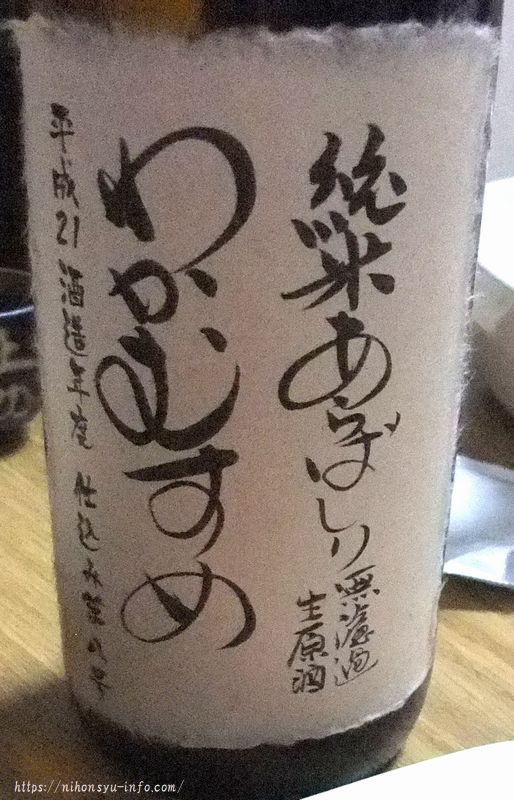 純米あらばしり
無濾過
生原酒
わかむすめ
平成21酒造年度 仕込み
https://nihonsyu-info.com/